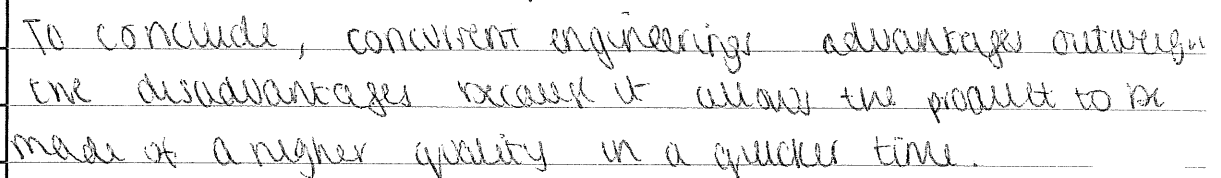 To conclude, concurrent engineerings advantages outweigh
the disadvantages because it allows the product to be
made of a higher quality in a quicker time.